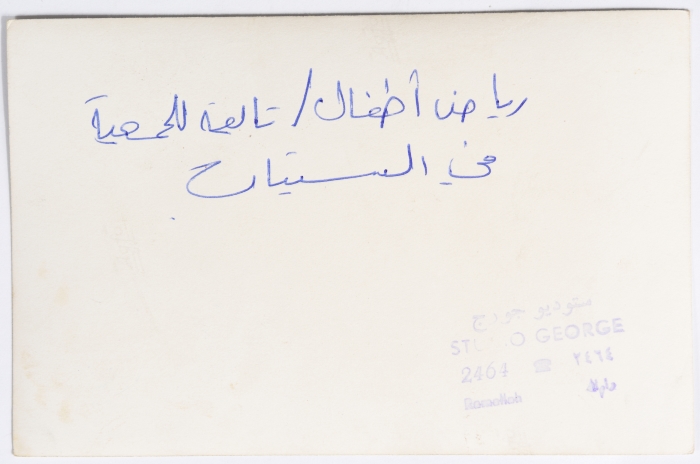 رياض أطفال / تابعة للجمعية
في الستينات
ستوديو جورج
STUDIO GEORGE
2464 ☎ ٢٤٦٤
Ramallah رام الله